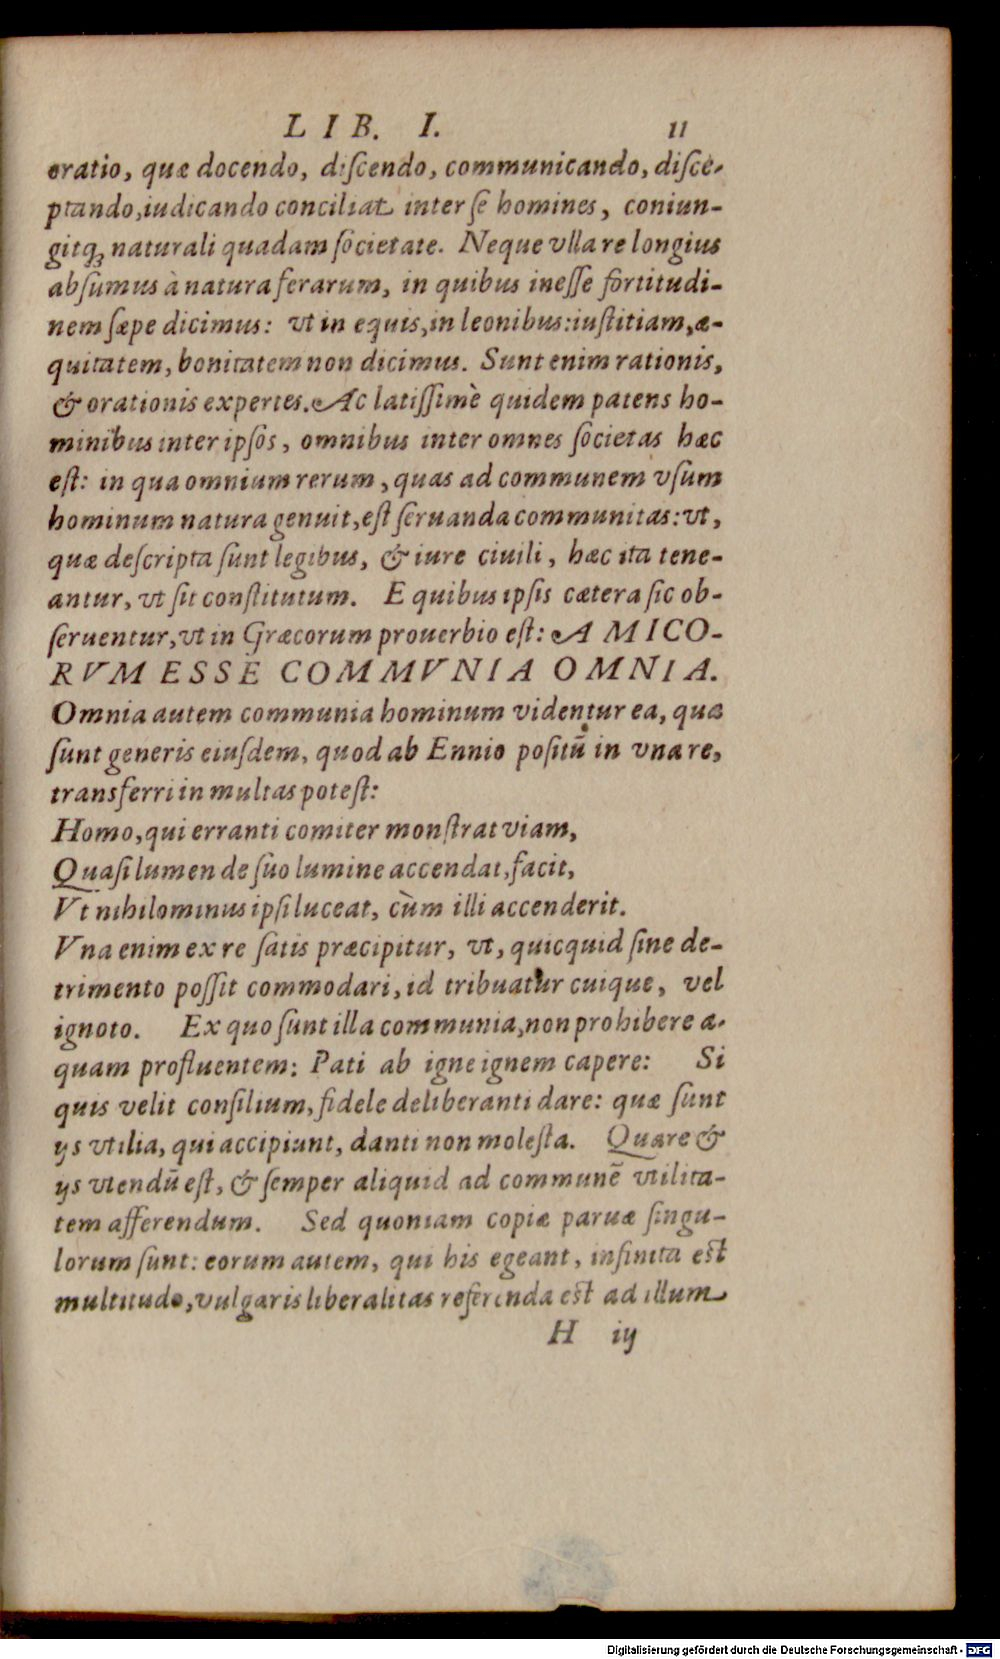 LIB. I. 11
oratio, quæ docendo, diſcendo, communicando, diſce-
ptando, iudicando conciliat inter ſe homines, coniun-
gitq́; naturali quadam ſocietate. Neque vlla re longius
abſumus à natura ferarum, in quibus ineſſe fortitudi-
nem ſæpe dicimus: vt in equis, in leonibus: iuſtitiam, æ-
quitatem, bonitatem non dicimus. Sunt enim rationis,
& orationis expertes. Ac latiſſimè quidem patens ho-
minibus inter ipſos, omnibus inter omnes ſocietas hæc
eſt: in qua omnium rerum, quas ad communem vſum
hominum natura genuit, eſt ſeruanda communitas: vt,
quæ deſcripta ſunt legibus, & iure ciuili, hæc ita tene-
antur, vt ſit conſtitutum. E quibus ipſis cætera ſic ob-
ſeruentur, vt in Græcorum prouerbio eſt: AMICO-
RVM ESSE COMMVNIA OMNIA.
Omnia autem communia hominum videntur ea, quæ
ſunt generis eiuſdem, quod ab Ennio poſitū in vna re,
transferri in multas poteſt:
Homo, qui erranti comiter monſtrat viam,
Quaſi lumen de ſuo lumine accendat, facit,
Vt nihilominus ipſi luceat, cùm illi accenderit.
Vna enim ex re ſatis præcipitur, vt, quicquid ſine de-
trimento poſſit commodari, id tribuatur cuique, vel
ignoto. Ex quo ſunt illa communia, non prohibere a-
quam profluentem: Pati ab igne ignem capere: Si
quis velit conſilium, fidele deliberanti dare: quæ ſunt
ijs vtilia, qui accipiunt, danti non moleſta. Quare &
ijs vtendū eſt, & ſemper aliquid ad communē vtilita-
tem afferendum. Sed quoniam copiæ paruæ ſingu-
lorum ſunt: eorum autem, qui his egeant, infinita eſt
multitudo, vulgaris liberalitas referenda eſt ad illum
H iij
Digitalisierung gefördert durch die Deutsche Forschungsgemeinschaft - DFG